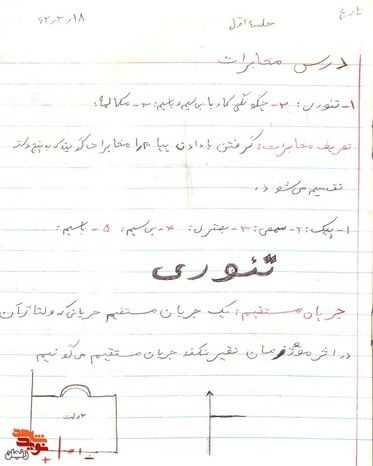 تاریخ
جلسه اول
۶۲/۲/۱۸
درس مخابرات
۱- تئوری: ۲- چگونگی کار با بی‌سیم و باسیم: ۳- مکالمه:
تعریف مخابرات: گرفتن یا دادن پیام را مخابرات گویند که به پنج دسته
تقسیم می‌شود.
۱- پیک: ۲- سمعی: ۳- بصری: ۴- بی‌سیم: ۵- باسیم:
تئوری
جریان مستقیم: یک جریان مستقیم جریانی که ولتاژ آن
در اثر مرور زمان تغییر نکند جریان مستقیم می‌گوئیم
۲ ولت
+ -
نوید شاهد
زنجان